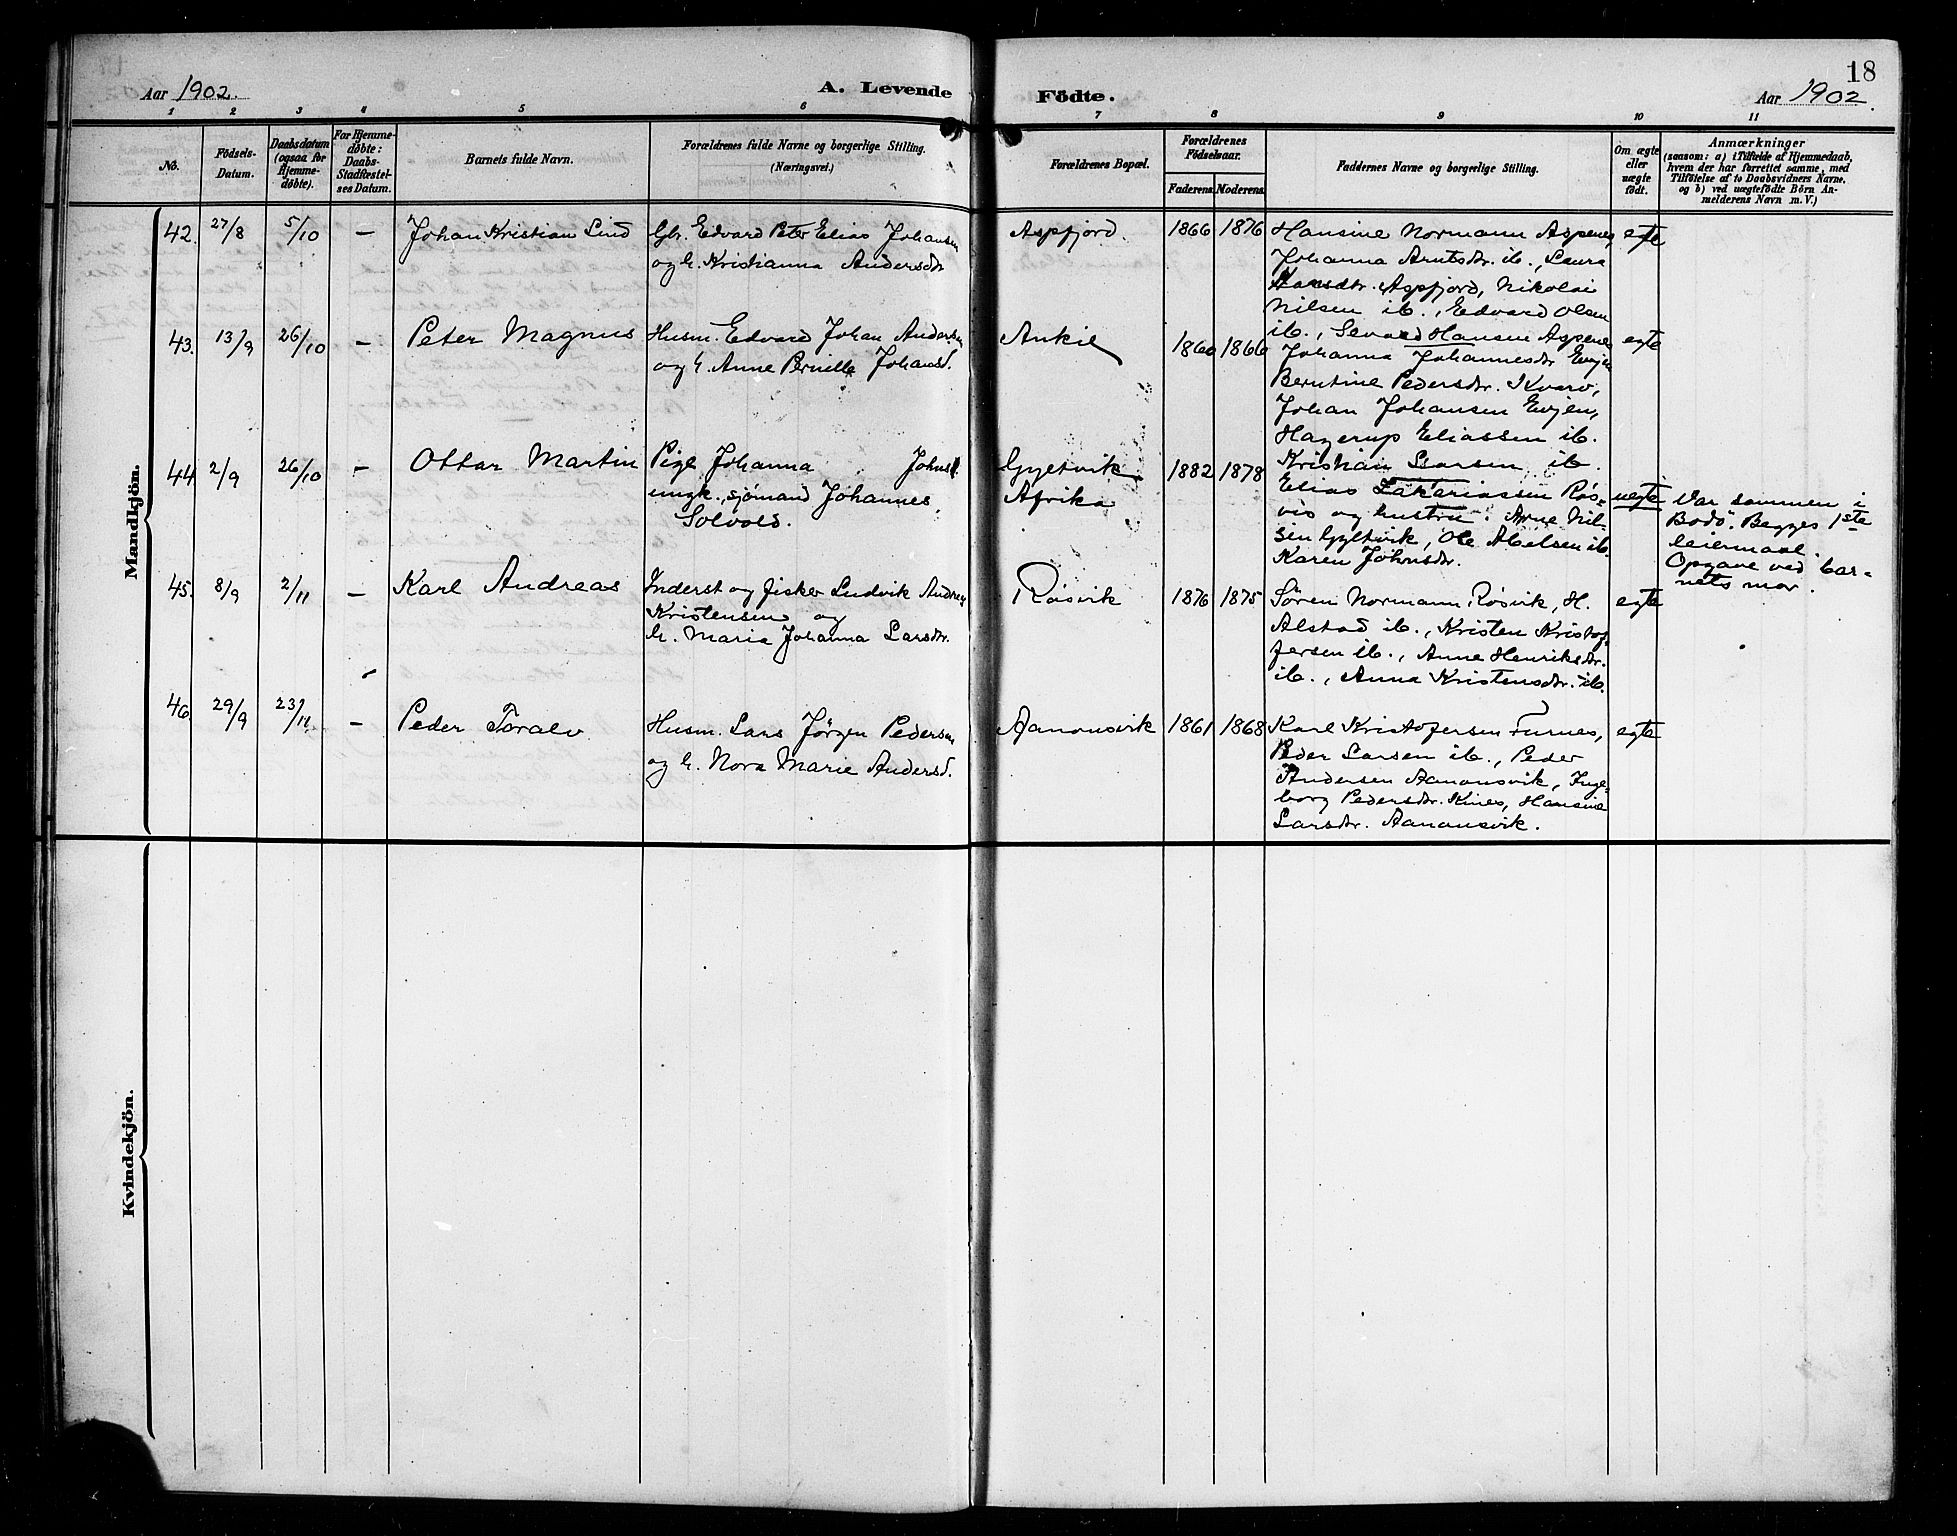 18
Aar 1902.
A. Levende
Födte.
Aar 1902.
1 2 3 4 5 6 7 8 9 10 11
No.
Födsels-
Datum.
Daabsdatum
(ogsaa for
Hjemme-
döbte).
For Hjemme-
döbte:
Daabs-
Stadfæstel-
ses Datum.
Barnets fulde Navn.
Forældrenes fulde Navne og borgerlige Stilling.
(Næringsvei.)
Forældrenes Bopæl.
Forældrenes
Födselsaar.
Faderens. Moderens.
Faddernes Navne og borgerlige Stilling.
Om ægte
eller
uægte
födt.
Anmærkninger
(saasom: a) i Tilfælde af Hjemmedaab,
hvem der har forrettet samme, med
Tilföielse af to Daabsvidners Navne,
og b) ved uægtefödte Börn An-
melderens Navn m. V.)
Mandkjön.
42. 27/8 5/10 — Johan Kristian Lind
Gbr. Edvard Peter Elias Johansen
og h. Kristianna Andersdtr
Aspfjord. 1866 1876
Hansine Normann Aspenes,
Johanna Arntsdtr. ib., Laura
Hansdtr. Aspfjord, Nikolai
Nilsen ib., Edvard Olsen
ib., Sevald Hansen Aspenes
egte
43. 13/9 26/10 — Peter Magnus
Husm. Edvard Johan Andersen
og h. Anne Pernille Johansd.
1860 1866
Johanna Johannesdtr Evjen
Berntine Pedersdtr. Kvarv,
Johan Johansen Evjen,
Hagerup Eliassen ib.
Kristian Larsen ib.
egte
44. 2/9 26/10 — Ottar Martin
Pige Johanna Johnsd.
ungk., sjömand Johannes
Solvold.
Gyltvik
Afrika
1882 1878
Elias Zakariassen Røs-
vik og hustru. Arne Nil-
sen Gyltvik, Ole Abelsen ib.
Karen Johnsdtr.
uegte
Var sammen i
Bodö. Begges 1ste
leiermaal.
Opgave ved bar-
nets mor.
45. 8/9 2/11 — Karl Andreas
Inderst og fisker Ludvik Andreas
Kristensen og
h. Maria Johanna Larsdtr.
Røsvik 1876 1875
Søren Normann Røsvik, H.
Alstad ib., Kristen Kristof-
fersen ib., Anne Henriksdtr.
ib., Anna Kristensdtr. ib.
egte
46. 29/9 23/11 — Peder Toralv
Husm. Lars Jørgen Pedersen
og h. Nora Marie Andersd.
Aanonsvik 1861 1868
Karl Kristofersen Furnes,
Peder Larsen ib., Peder
Andersen Aanonsvik, Inge-
borg Pedersdtr. Kines, Hansine
Larsdtr. Aanonsvik.
egte
Kvindekjön.